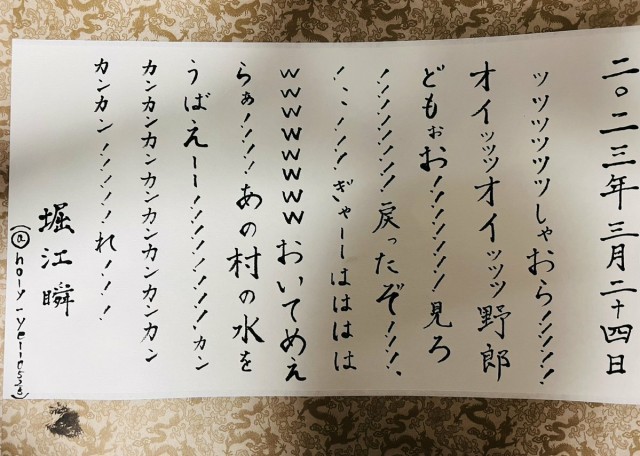 二〇二三年三月二十四日
ッツツツツツしゃおら！！！！！
オイッッツオイッッツ野郎
どもぉお！！！！！！！見ろ
！！！！！！！！戻ったぞ！！！！、
！、、！！！！ぎゃーーはははは
ｗｗｗｗｗｗｗｗおいてめぇ
らぁ！！！！あの村の水を
うばえーー！！！！！！！！カン
カンカンカンカンカンカンカン
カンカン！！！！！！れ！！！
堀江瞬